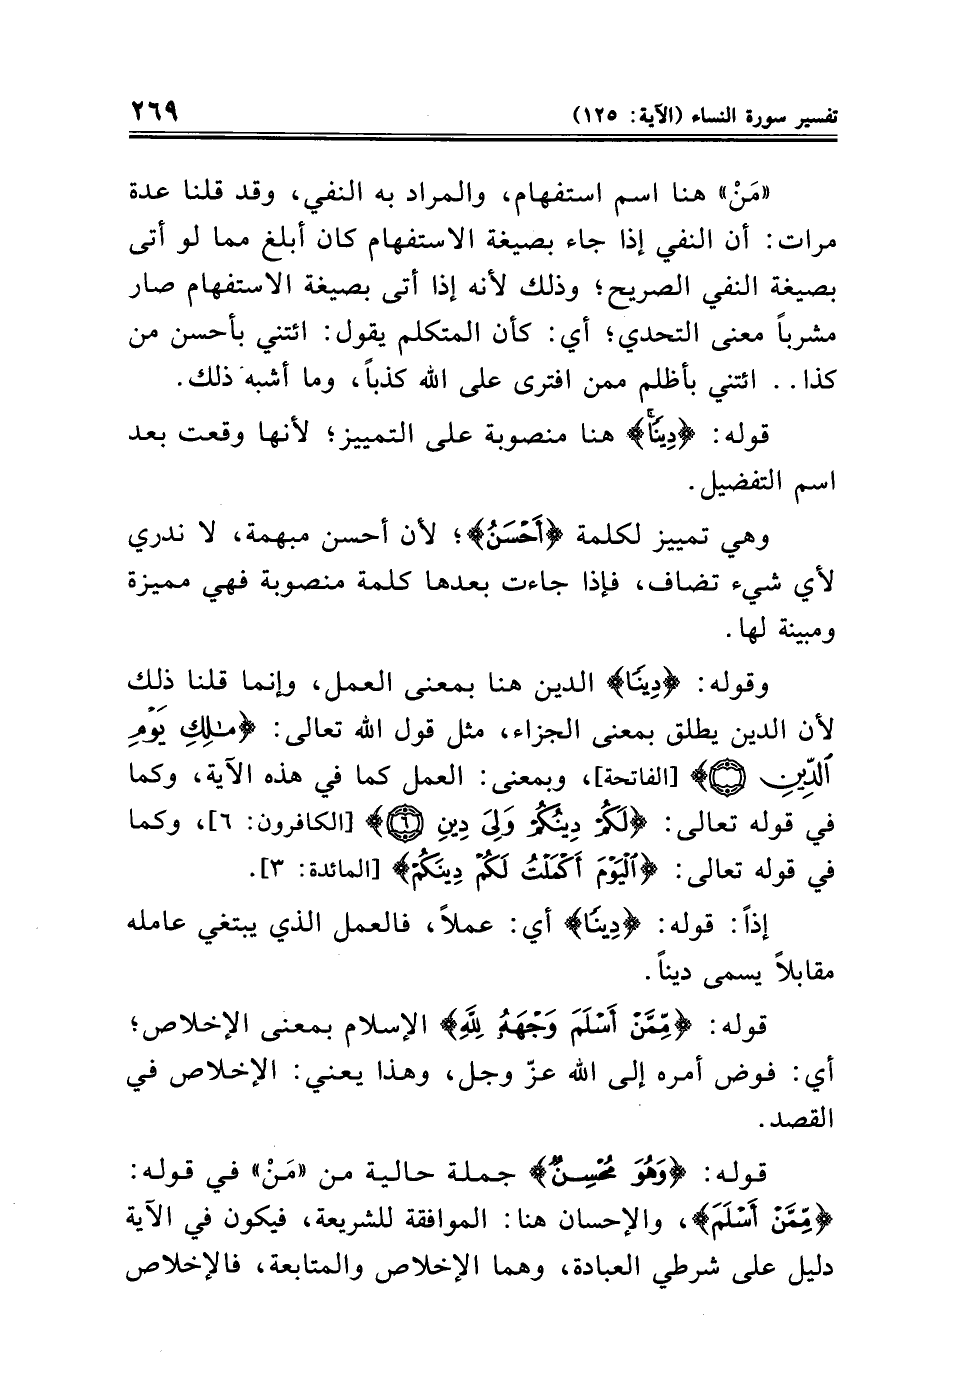 تفسير سورة النساء (الآية: ١٢٥) ٢٦٩
«مَنْ» هنا اسم استفهام، والمراد به النفي، وقد قلنا عدة
مرات: أن النفي إذا جاء بصيغة الاستفهام كان أبلغ مما لو أتى
بصيغة النفي الصريح؛ وذلك لأنه إذا أتى بصيغة الاستفهام صار
مشرباً معنى التحدي؛ أي: كأن المتكلم يقول: ائتني بأحسن من
كذا.. ائتني بأظلم ممن افترى على الله كذباً، وما أشبه ذلك.
قوله: ﴿دِينًاۚ﴾ هنا منصوبة على التمييز؛ لأنها وقعت بعد
اسم التفضيل.
وهي تمييز لكلمة ﴿أَحْسَنُ﴾؛ لأن أحسن مبهمة، لا ندري
لأي شيء تضاف، فإذا جاءت بعدها كلمة منصوبة فهي مميزة
ومبينة لها.
وقوله: ﴿دِينًا﴾ الدين هنا بمعنى العمل، وإنما قلنا ذلك
لأن الدين يطلق بمعنى الجزاء، مثل قول الله تعالى: ﴿مَٰلِكِ يَوْمِ
ٱلدِّينِ ۝﴾ [الفاتحة]، وبمعنى: العمل كما في هذه الآية، وكما
في قوله تعالى: ﴿لَكُمْ دِينُكُمْ وَلِىَ دِينِ ۝٦﴾ [الكافرون: ٦]، وكما
في قوله تعالى: ﴿ٱلْيَوْمَ أَكْمَلْتُ لَكُمْ دِينَكُمْ﴾ [المائدة: ٣].
إذاً: قوله: ﴿دِينًا﴾ أي: عملاً، فالعمل الذي يبتغي عامله
مقابلاً يسمى ديناً.
قوله: ﴿مِّمَّنْ أَسْلَمَ وَجْهَهُۥ لِلَّهِ﴾ الإسلام بمعنى الإخلاص؛
أي: فوض أمره إلى الله عزّ وجل، وهذا يعني: الإخلاص في
القصد.
قوله: ﴿وَهُوَ مُحْسِنٌ﴾ جملة حالية من «مَنْ» في قوله:
﴿مِّمَّنْ أَسْلَمَ﴾، والإحسان هنا: الموافقة للشريعة، فيكون في الآية
دليل على شرطي العبادة، وهما الإخلاص والمتابعة، فالإخلاص